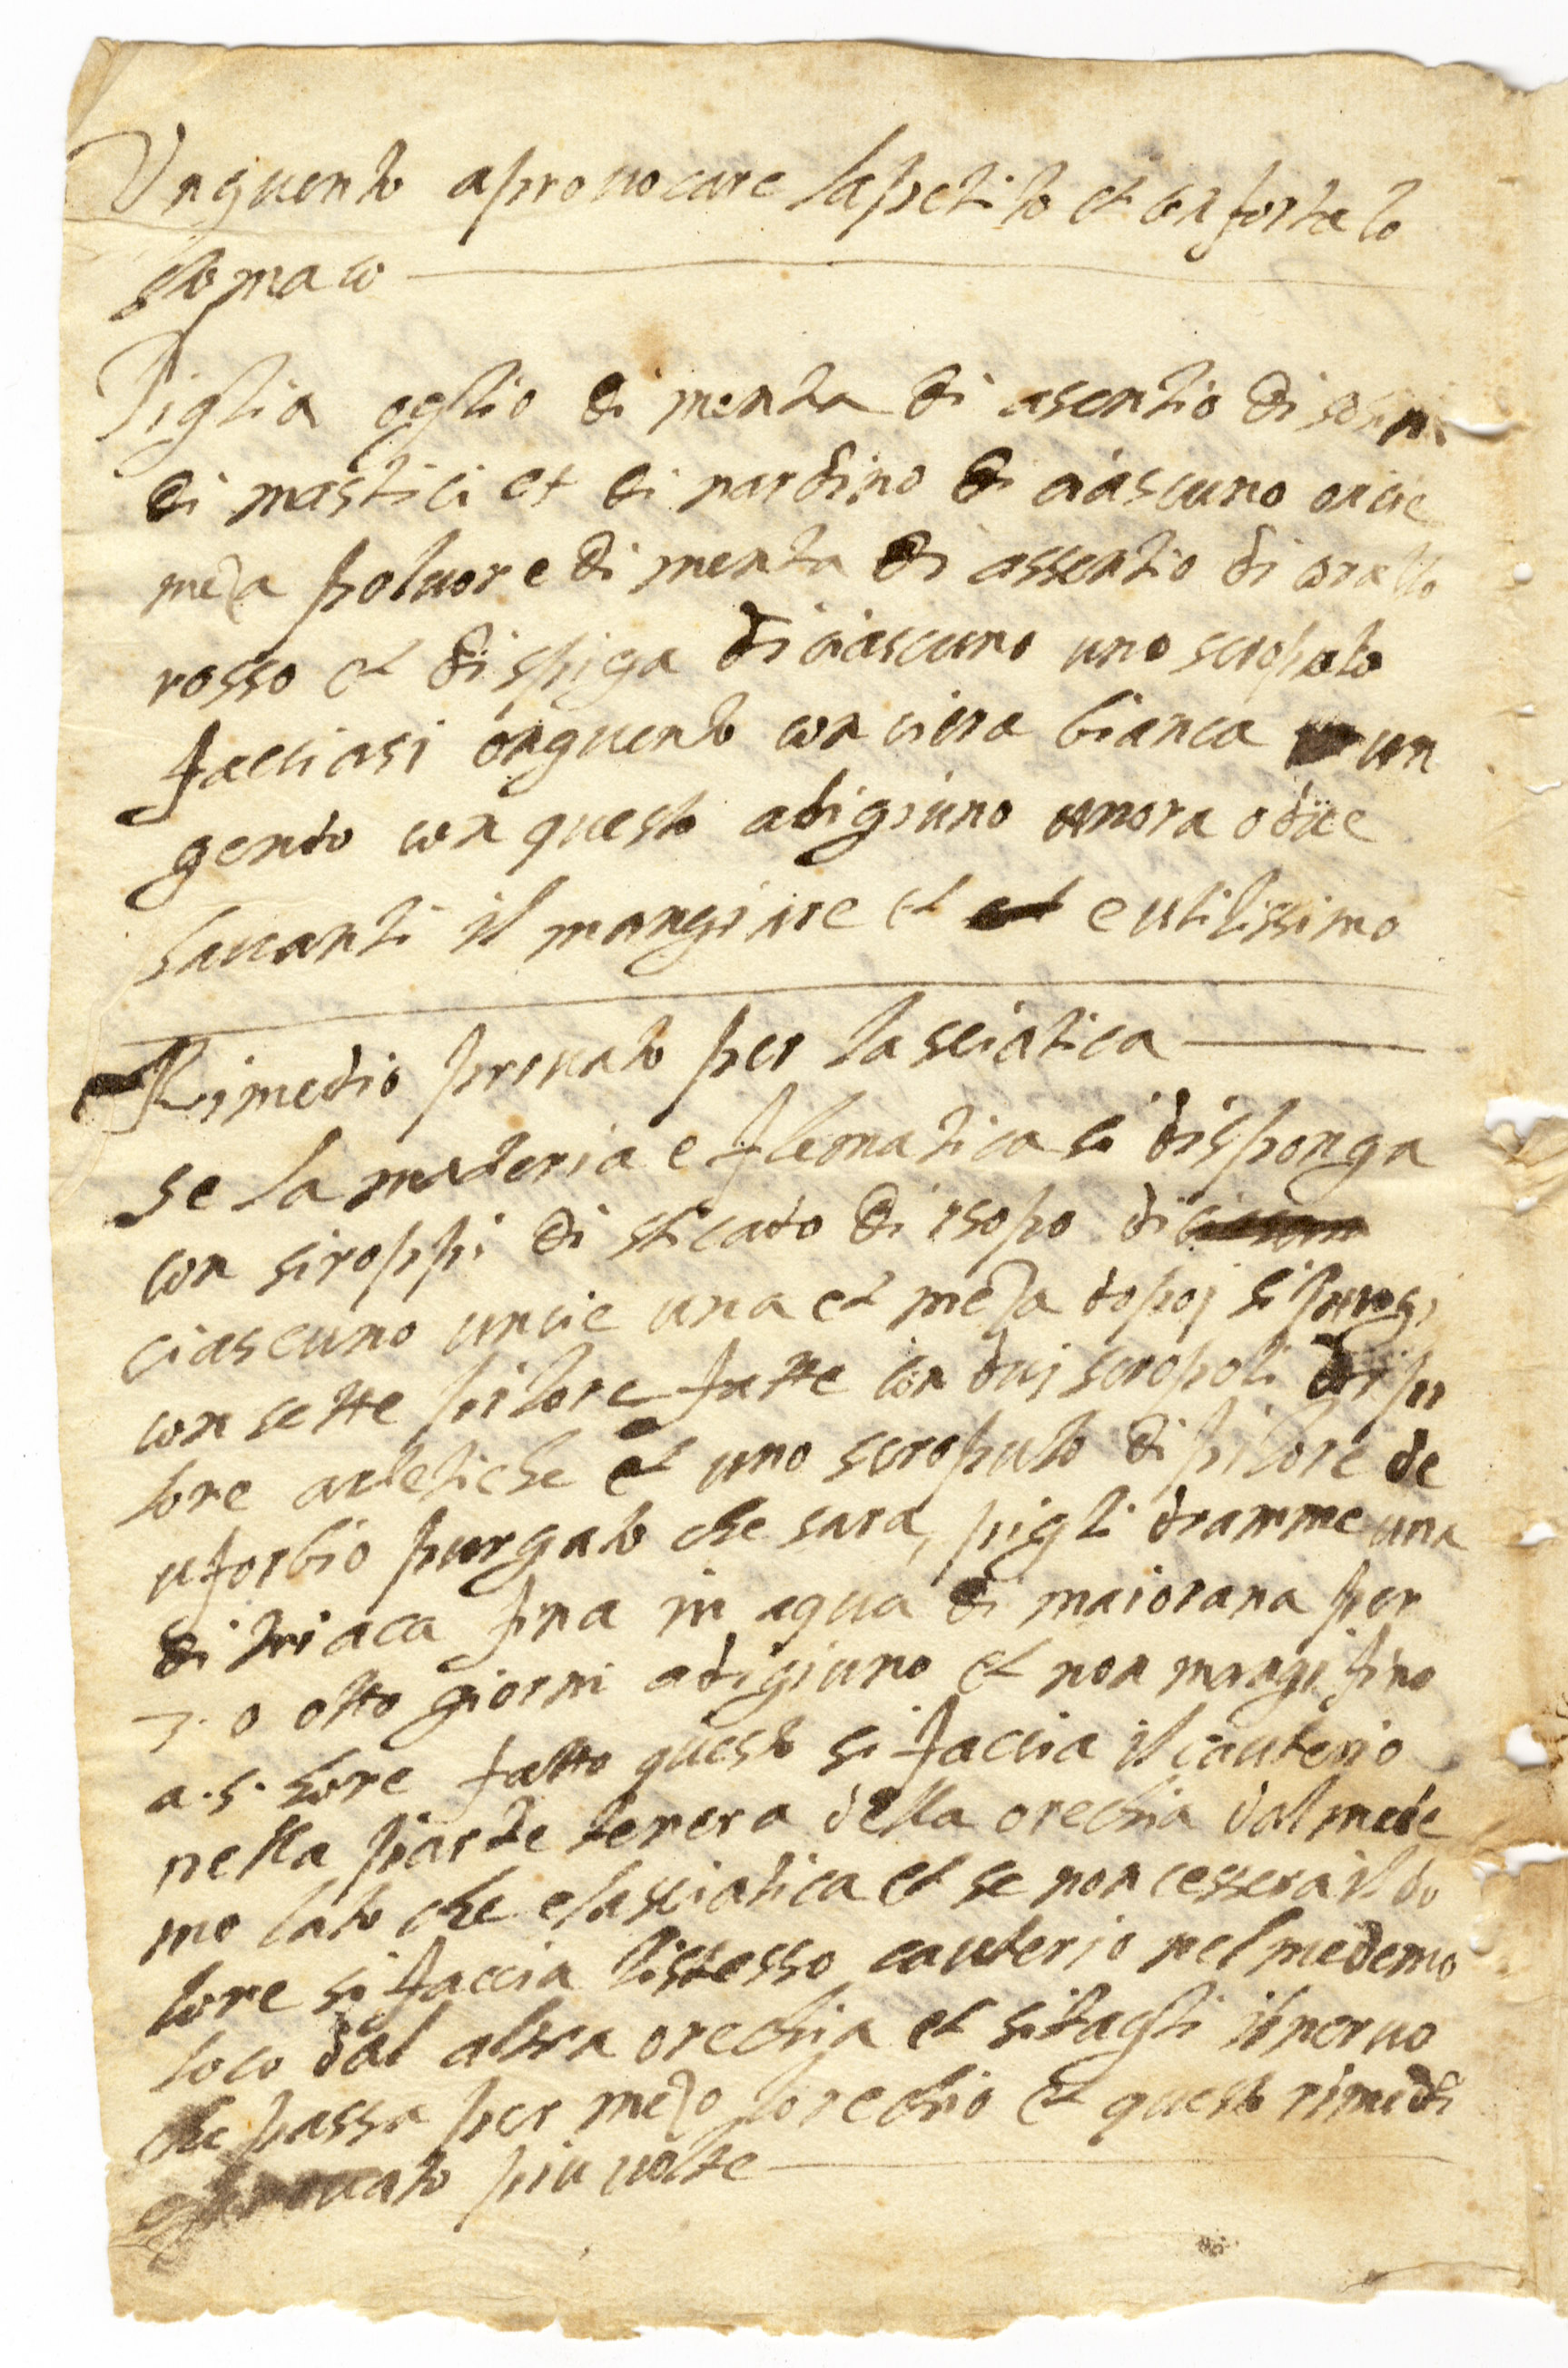 Unguento aprouocare lapetito et conforta lo
stomaco
Piglia oglio di menta di asentio di
di mastici et di nardino di ciascuno oncie
meza poluere di menta di assentio di corallo
rosso et di spiga di ciascuno uno scropolo
facciasi onguento con ciera bianca un
gendo con questo adigiuno unora o due
hauanti il mangiare et e utilissimo
Rimedio prouato per la sciatica
se la materia e flematica si disponga
con siroppi di sticado di isopo di
ciascuno uncie una et meza dopoj si purgi
con sette pilore fatte con duj scropoli di pi
lore artetiche et uno scropulo di pilore de
uforbio purgato che sara, pigli dramme una
di triaca fina in aqua di maiorana per
7. o otto giorni adigiuno et non mangi fino
a .5. hore fatto questo si faccia il cauterio
nella parte tenera della orechia dal mede
mo lato che e la sciatica et se non cessera il do
lore si faccia listesso cauterio nel medemo
loco dal altra orechia et si tagli il neruo
che passa per mezo lorechio et questo rimedi
e prouato piu uolte